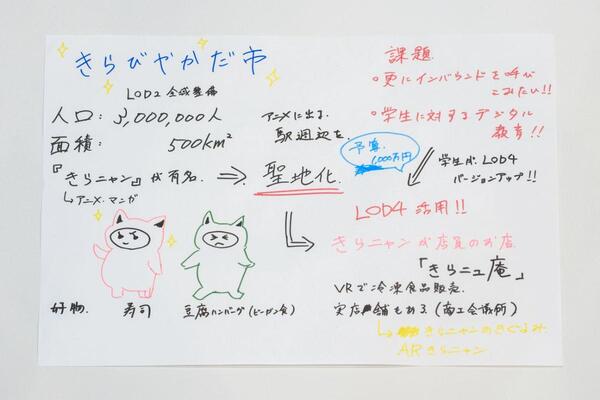 きらびやかだ市
LOD2 全域整備
人口: 3,000,000人
面積: 500km²
『きらニャン』が有名.
↳アニメ・マンガ
アニメに出る.
駅週辺を.
⇒ 聖地化.
予算.
1,000万円
課題.
・更にインバウンドを呼び
こみたい!!
・学生に対するデジタル
教育!!
学生が、LOD4
バージョンアップ!!
LOD4 活用!!
きらニャンが店員のお店.
「きらニュ庵」
VRで冷凍食品販売.
実店舗もある(商工会議所)
きらニャンのきぐるみ
ARきらニャン
好物. 寿司 豆腐ハンバーグ(ビーガン食)